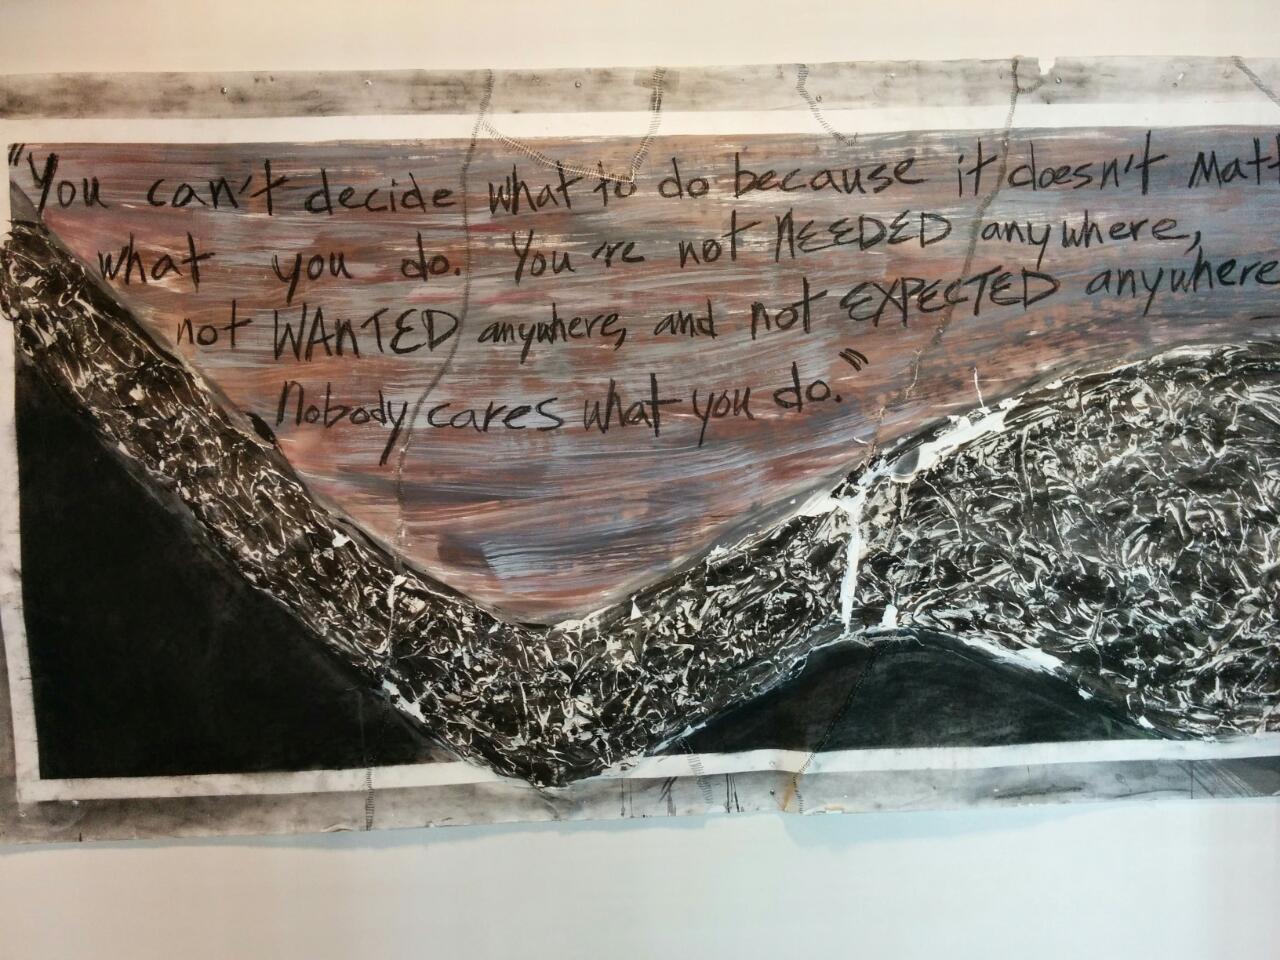 "You can't decide what to do because it doesn't Matt
what you do. You're not NEEDED anywhere,
not WANTED anywhere, and not EXPECTED anywhere
Nobody cares what you do."